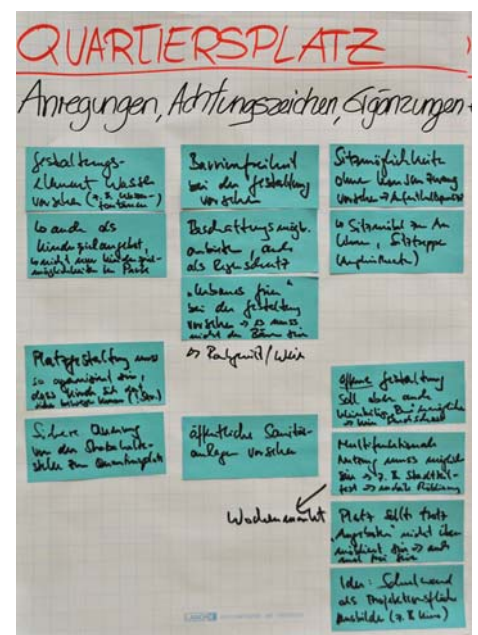 QUARTIERSPLATZ
Anregungen, Achtungszeichen, Ergänzungen
Gestaltungs-
element Wasser
vorsehen (z.B. Wasser-
fontänen)
↳ auch als
Kinderspielangebot,
↳ nicht nur Kinderspiel-
möglichkeiten im Park
Platzgestaltung muss
so organisiert sein,
dass Kinder sich
Sichere Querung
von der Strabahalte-
stelle zum Quartiersplatz
Barrierefreiheit
bei der Gestaltung
vorsehen
Beschattungsmögl.
anbieten, auch
als Regenschutz
"Urbanes Grün"
bei der Gestaltung
vorsehen → es muss
nicht der Baum sein
öffentliche Sanitär-
anlagen vorsehen
Wochenmarkt
Sitzmöglichkeiten
ohne Konsumzwang
vorsehen → Aufenthaltsqualität
↳ Sitzmöbel zum An
lehnen, Sitztreppe
offene Gestaltung
soll aber auch
Multifunktionale
Nutzung muss möglich
sein → z.B. Stadtteil-
fest →
Platz sollte trotz
"Angeboten" nicht über
möbliert sein → auch
mal frei sein
Idee: Schulwand
als Projektionsfläche
ausbilden (z.B. Kino)